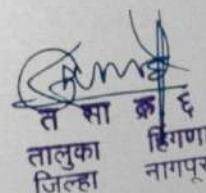 त सा क्र ६
तालुका हिंगणा
जिल्हा नागपूर